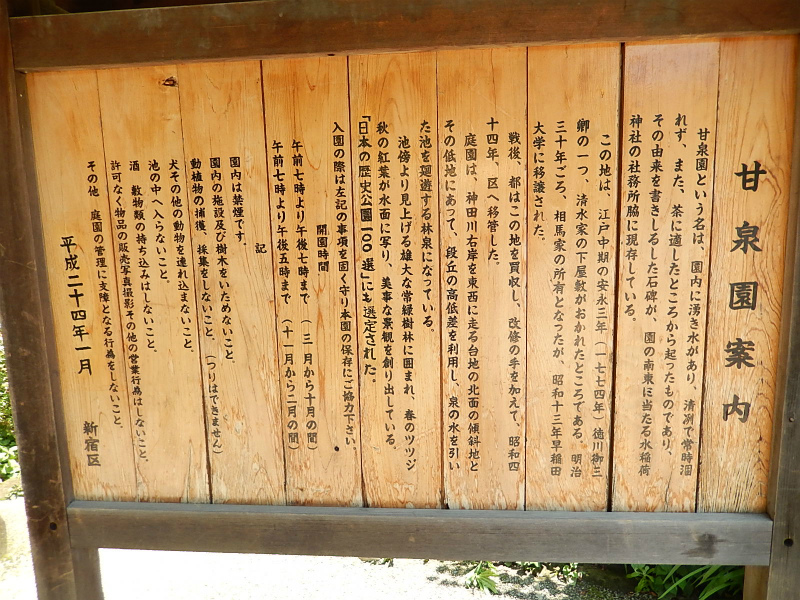 甘泉園案内
甘泉園という名は、園内に湧き水があり、清冽で常時涸
れず、また、茶に適したところから起ったものであり、
その由来を書きしるした石碑が、園の南東に当たる水稲荷
神社の社務所脇に現存している。
この地は、江戸中期の安永三年（一七七四年）徳川御三
卿の一つ、清水家の下屋敷がおかれたところである。明治
三十年ごろ、相馬家の所有となったが、昭和十三年早稲田
大学に移譲された。
戦後、都はこの地を買収し、改修の手を加えて、昭和四
十四年、区へ移管した。
庭園は、神田川右岸を東西に走る台地の北面の傾斜地と
その低地にあって、段丘の高低差を利用し、泉の水を引い
た池を廻遊する林泉になっている。
池傍より見上げる雄大な常緑樹林に囲まれ、春のツツジ
秋の紅葉が水面に写り、美事な景観を創り出している。
「日本の歴史公園一〇〇選」にも選定された。
入園の際は左記の事項を固く守り本園の保存にご協力下さい。
開園時間
午前七時より午後七時まで（三月から十月の間）
午前七時より午後五時まで（十一月から二月の間）
記
園内は禁煙です。
園内の施設及び樹木をいためないこと。
動植物の捕獲、採集をしないこと。（つりはできません）
犬その他の動物を連れ込まないこと。
池の中へ入らないこと。
酒、敷物類の持ち込みはしないこと。
許可なく物品の販売写真撮影その他の営業行為はしないこと。
その他、庭園の管理に支障となる行為をしないこと。
平成二十四年一月
新宿区